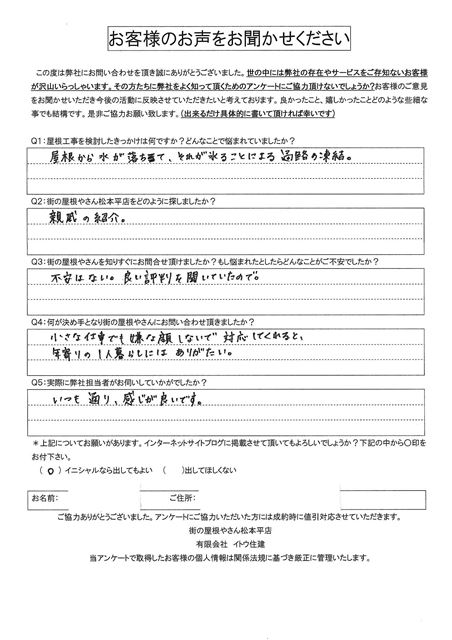 お客様のお声をお聞かせください
この度は弊社にお問い合わせを頂き誠にありがとうございました。世の中には弊社の存在やサービスをご存知ないお客様
が沢山いらっしゃいます。その方たちに弊社をよく知って頂くためのアンケートにご協力頂けないでしょうか?お客様のご意見
をお聞かせいただき今後の活動に反映させていただきたいと考えております。良かったこと、嬉しかったことどのような些細な
事でも結構です。是非ご協力お願い致します。(出来るだけ具体的に書いて頂ければ幸いです)
Q1:屋根工事を検討したきっかけは何ですか?どんなことで悩まれていましたか?
屋根から水が落ち来て、それが氷ることによる通路の凍結。
Q2:街の屋根やさん松本平店をどのように探しましたか?
親戚の紹介。
Q3:街の屋根やさんを知りすぐにお問合せ頂けましたか?もし悩まれたとしたらどんなことがご不安でしたか?
不安はない。良い評判を聞いていたので。
Q4:何が決め手となり街の屋根やさんにお問い合わせ頂けましたか?
小さな仕事でも嫌な顔しないで対応してくれると、
年寄りの1人暮らしにはありがたい。
Q5:実際に弊社担当者がお伺いしていかがでしたか?
いつも通り、感じが良いです。
*上記についてお願いがあります。インターネットサイトブログに掲載させて頂いてもよろしいでしょうか?下記の中から〇印を
お付下さい。
(〇)イニシャルなら出してもよい ( )出してほしくない
お名前: ご住所:
ご協力ありがとうございました。アンケートにご協力いただいた方には成約時に値引対応させていただきます。
街の屋根やさん松本平店
有限会社 イトウ住建
当アンケートで取得したお客様の個人情報は関係法規に基づき厳正に管理いたします。